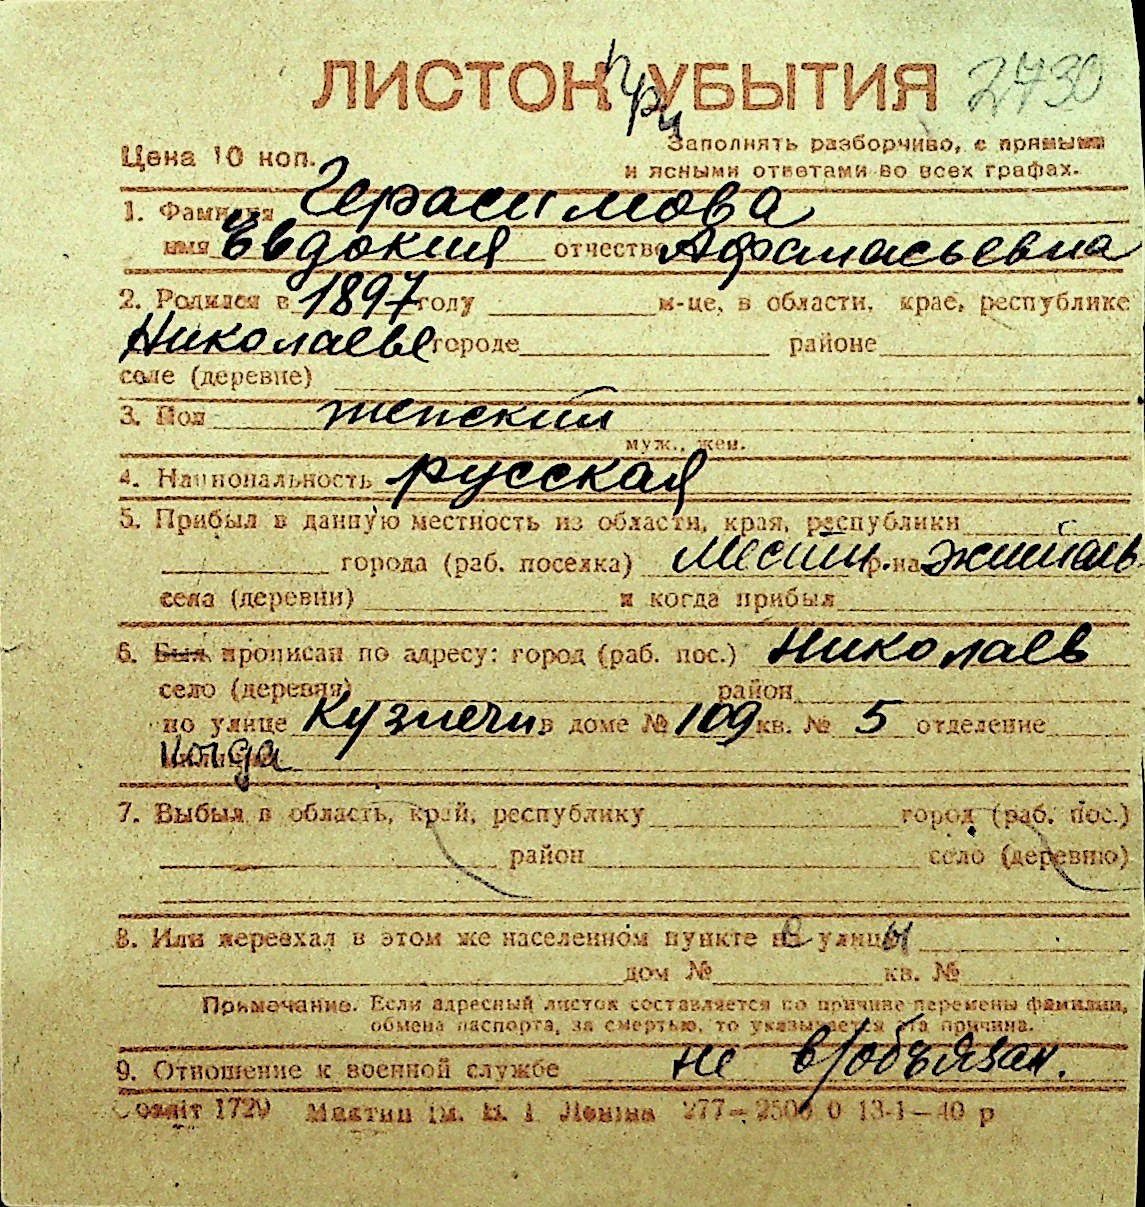 ЛИСТОК УБЫТИЯ при 2730
Цена 10 коп.
Заполнять разборчиво, с прямыми
и ясными ответами во всех графах.
1. Фамилия Герасимова
имя Евдокия отчество Афанасьевна
2. Родился в 1897 году м-це, в области, крае, республике
Николаеве городе районе
селе (деревне)
3. Пол женский
муж., жен.
4. Национальность русская
5. Прибыл в данную местность из области, края, республики
города (раб. поселка) Местн. р-на житель
села (деревни) и когда прибыл
6. Был прописан по адресу: город (раб. пос.) Николаев
село (деревня) район
по улице Кузнечн в доме № 109 кв. № 5 отделение
когда
7. Выбыл в область, край, республику город (раб. пос.)
район село (деревню)
8. Или переехал в этом же населенном пункте с улицы
дом № кв. №
Примечание. Если адресный листок составляется по причине перемены фамилии,
обмена паспорта, за смертью, то указывается эта причина.
9. Отношение к военной службе не в/обязан.
1729 277—2500 0 13-1—40 р